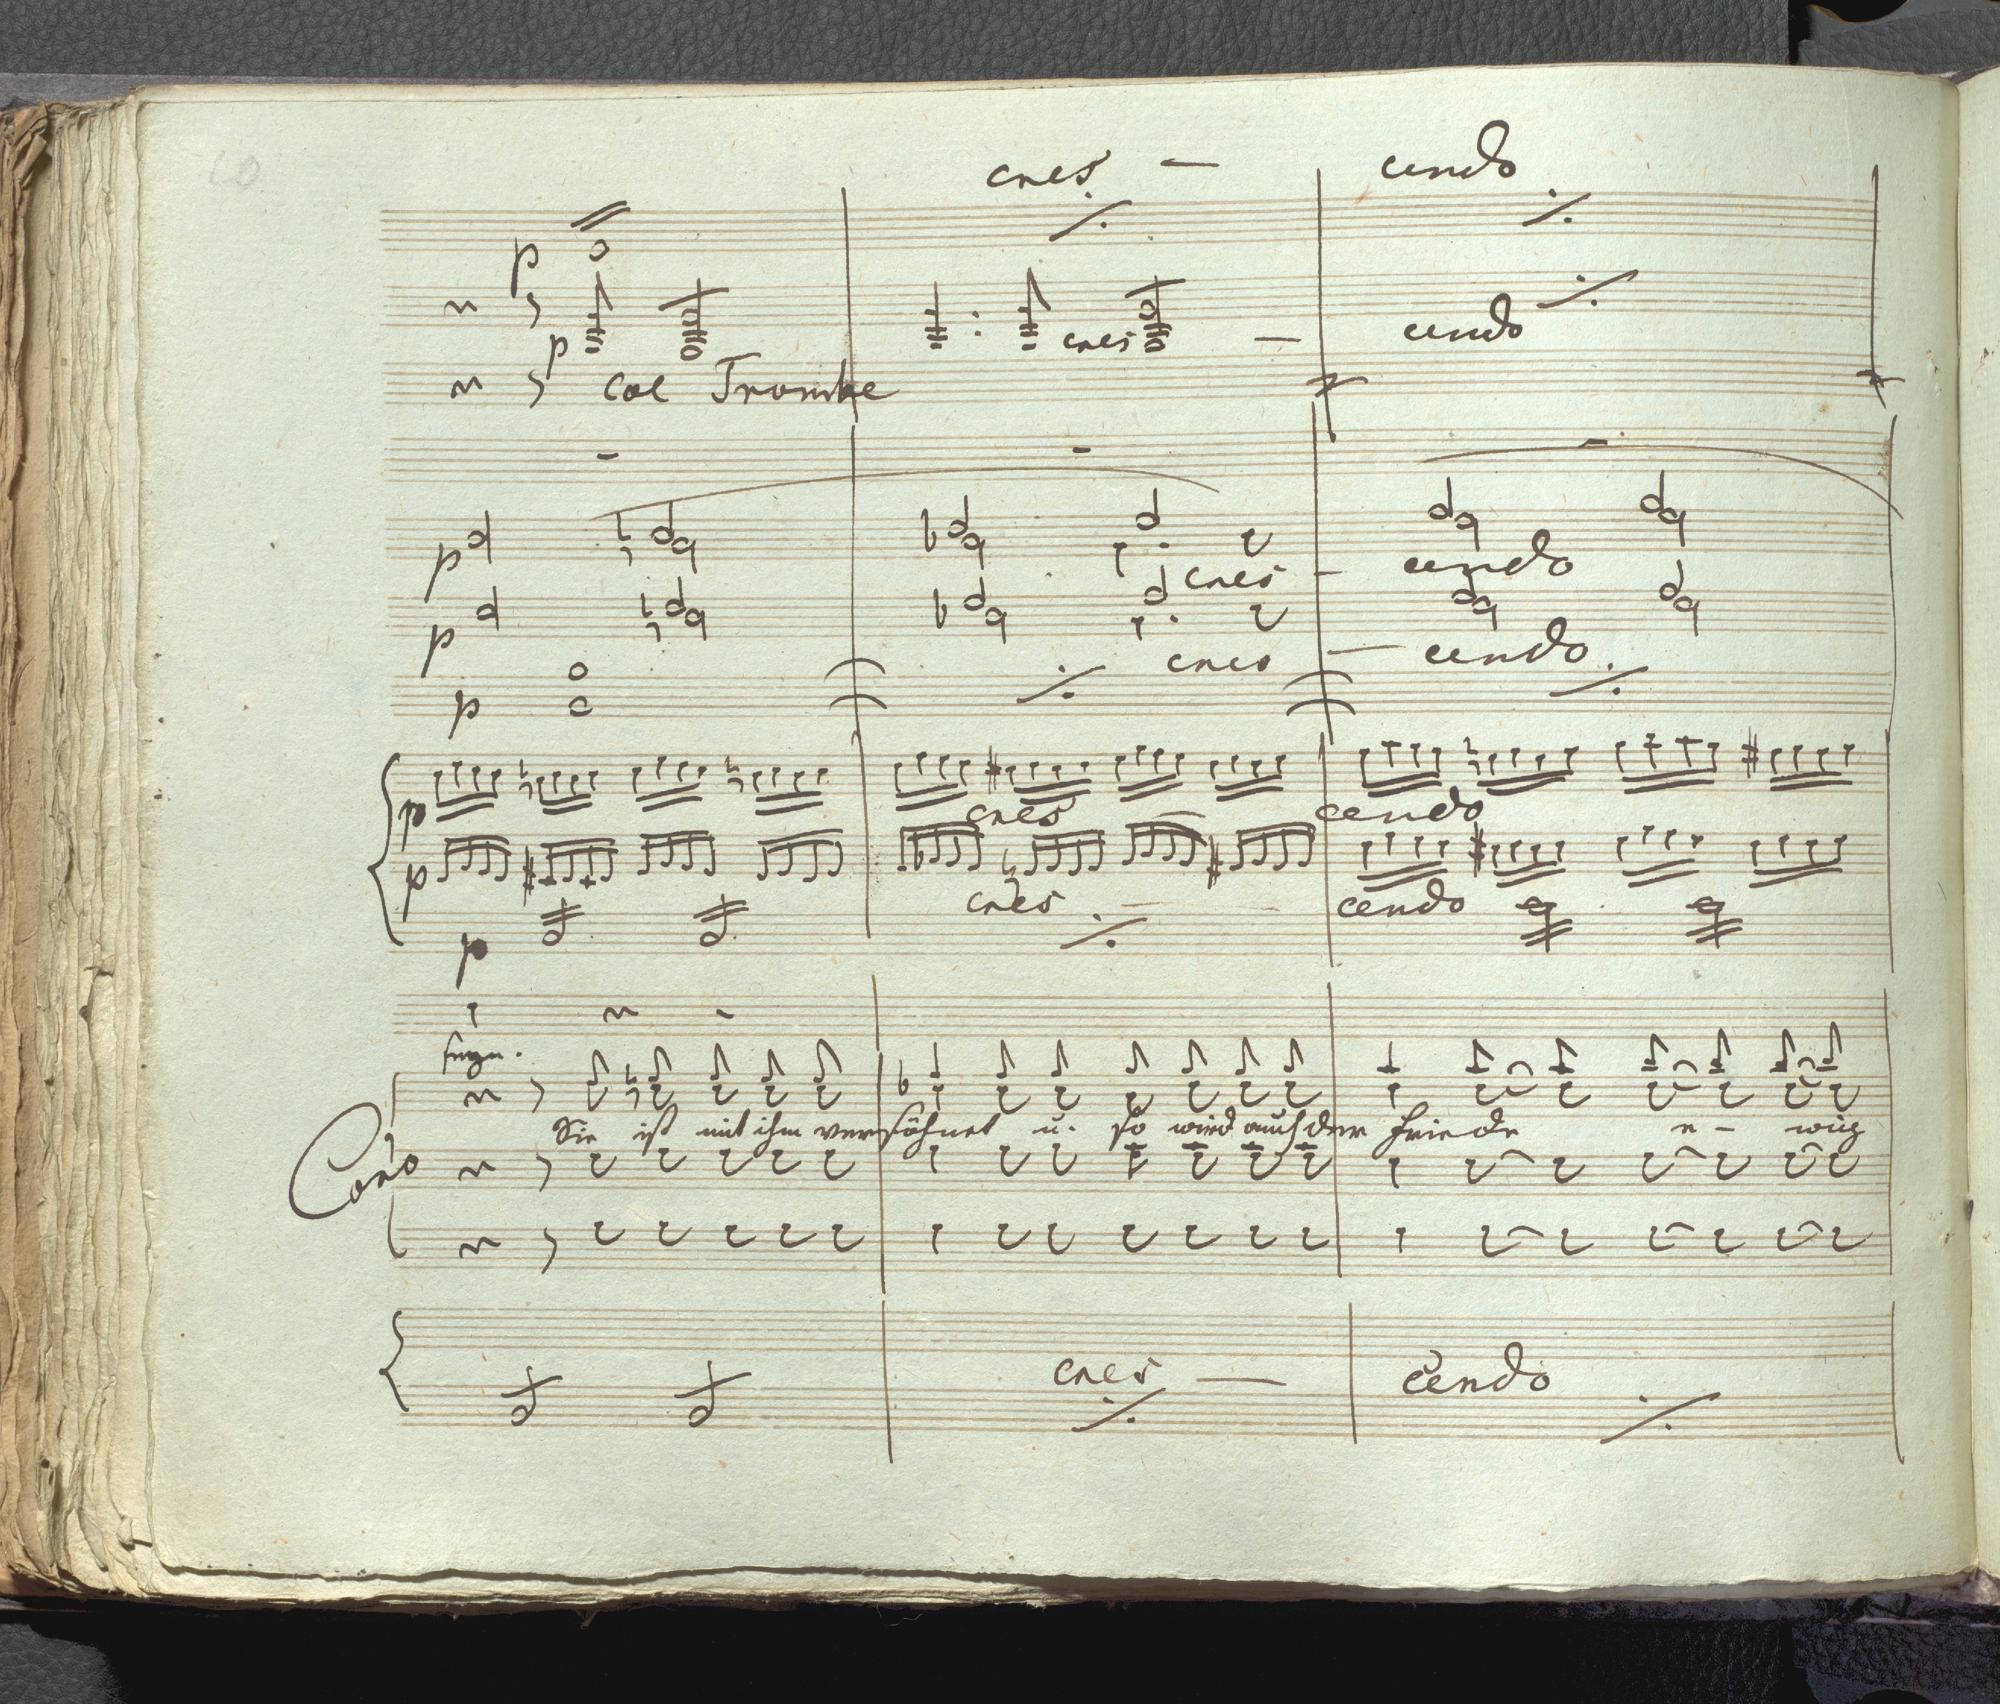 cres — cendo
p
p cres — cendo
col Trombe
p cres — cendo
p cres — cendo
p
p cres cendo
p cres cendo
p
Sie ist mit ihm versöhnet u. so wird auch der Friede e - wig
Coro
cres — cendo